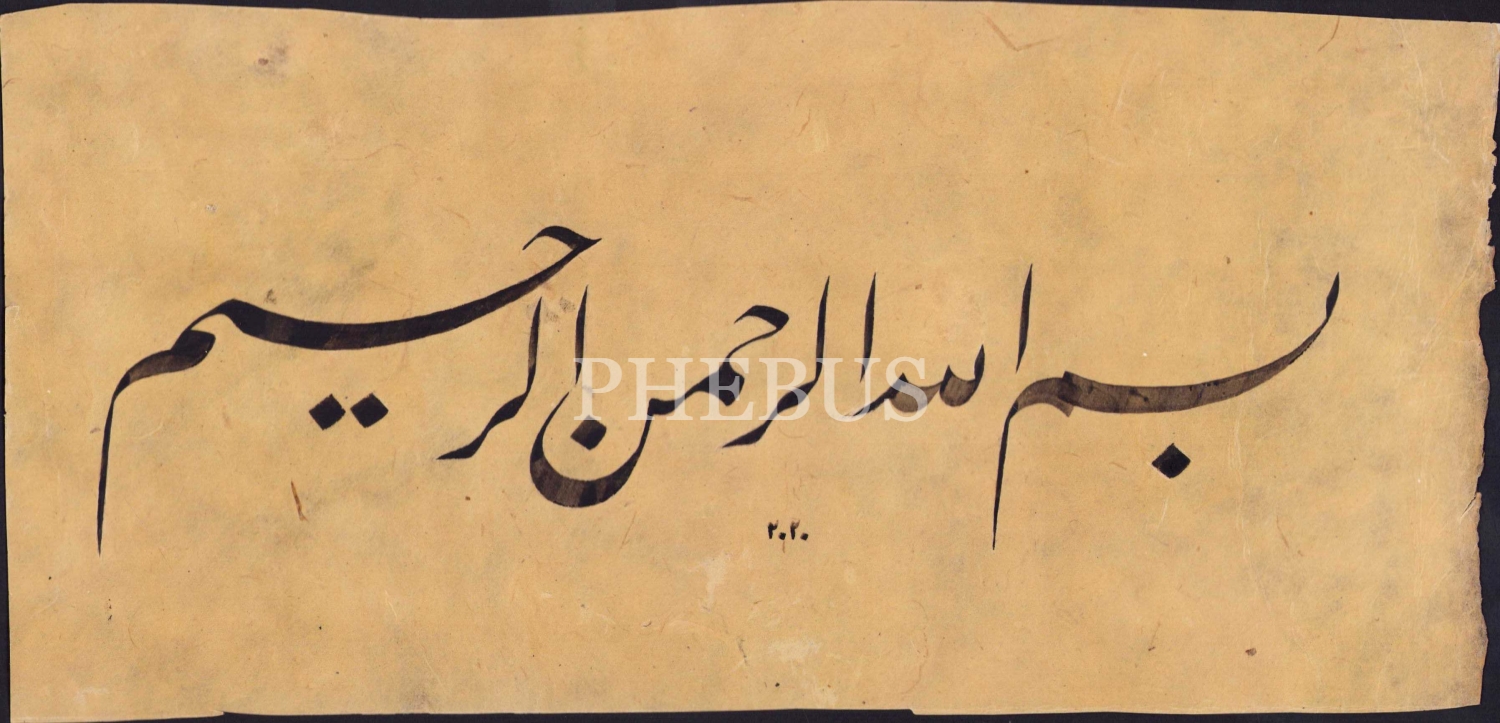 بسم الله الرحمن الرحيم
PHEBUS
٢٠٢٠